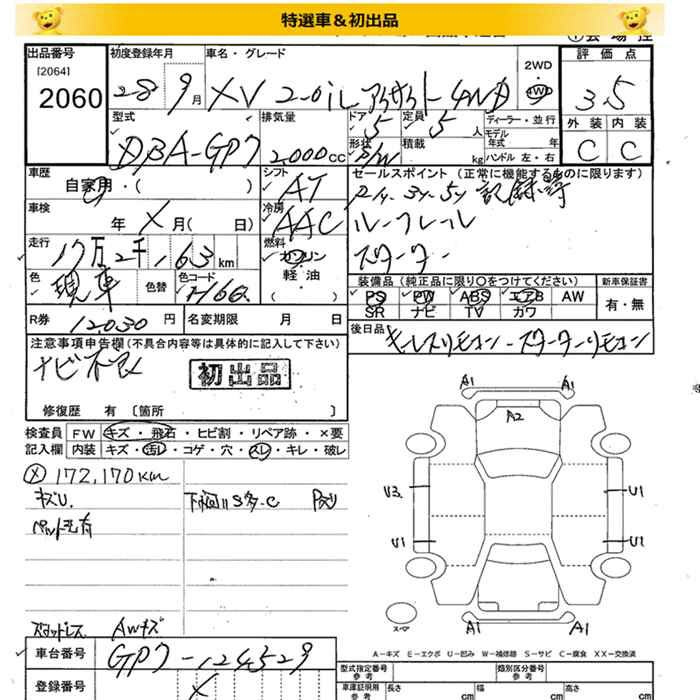 特選車＆初出品
出品番号 初度登録年月 車名・グレード 2WD 評価点
[2064]
2060 28 9月 XV 2.0iL アイサイト 4WD 4WD 3.5
型式 排気量 ドア 定員 ディーラー・並行 外装 内装
DBA-GP7 2000cc 5 5人 モデル年式 年
形状 積載 C C
5/W kg ハンドル 左・右
車歴 シフト セールスポイント(正常に機能するものに限ります)
自家用・( ) AT 記録簿
車検 冷房 ルーフレール
年 X月( 日) AAC スターター
走行 燃料
17万2千163km ガソリン
色 色替 色コード 軽油 装備品(純正品に限り○をつけてください) 新車保証書
現車 H6G ( ) PS PW ABS エアB AW 有・無
SR ナビ TV カワ
R券 12030円 名変期限 月 日 後日品
注意事項申告欄(不具合内容等は具体的に記入して下さい) キーレスリモコン・スターターリモコン
ナビ不良
初出品
修復歴 有 [箇所 ]
検査員 FW キズ・飛石・ヒビ割・リペア跡・×要
記入欄 内装 キズ・汚レ・コゲ・穴・スレ・キレ・破レ
172,170km
キズU. 下回りSタ-C Pスリ
ペット毛有
スタッドレス AWキズ
A1 A1
A2
U3. U1
U1 U1
A1 A1
スペア
A-キズ E-エクボ U-凹み W-補修跡 S-サビ C-腐食 XX-交換済
車台番号 GP7-124529 型式指定番号 類別区分番号
参考 参考
登録番号 X 車庫証明用 長さ 幅 高さ
参考 cm cm cm